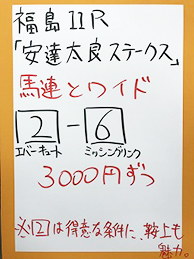 福島11R
「安達太良ステークス」
馬連とワイド
2-6
エバーキュート ミッシングリンク
3000円ずつ
※2は得意な条件に、鞍上も
魅力。